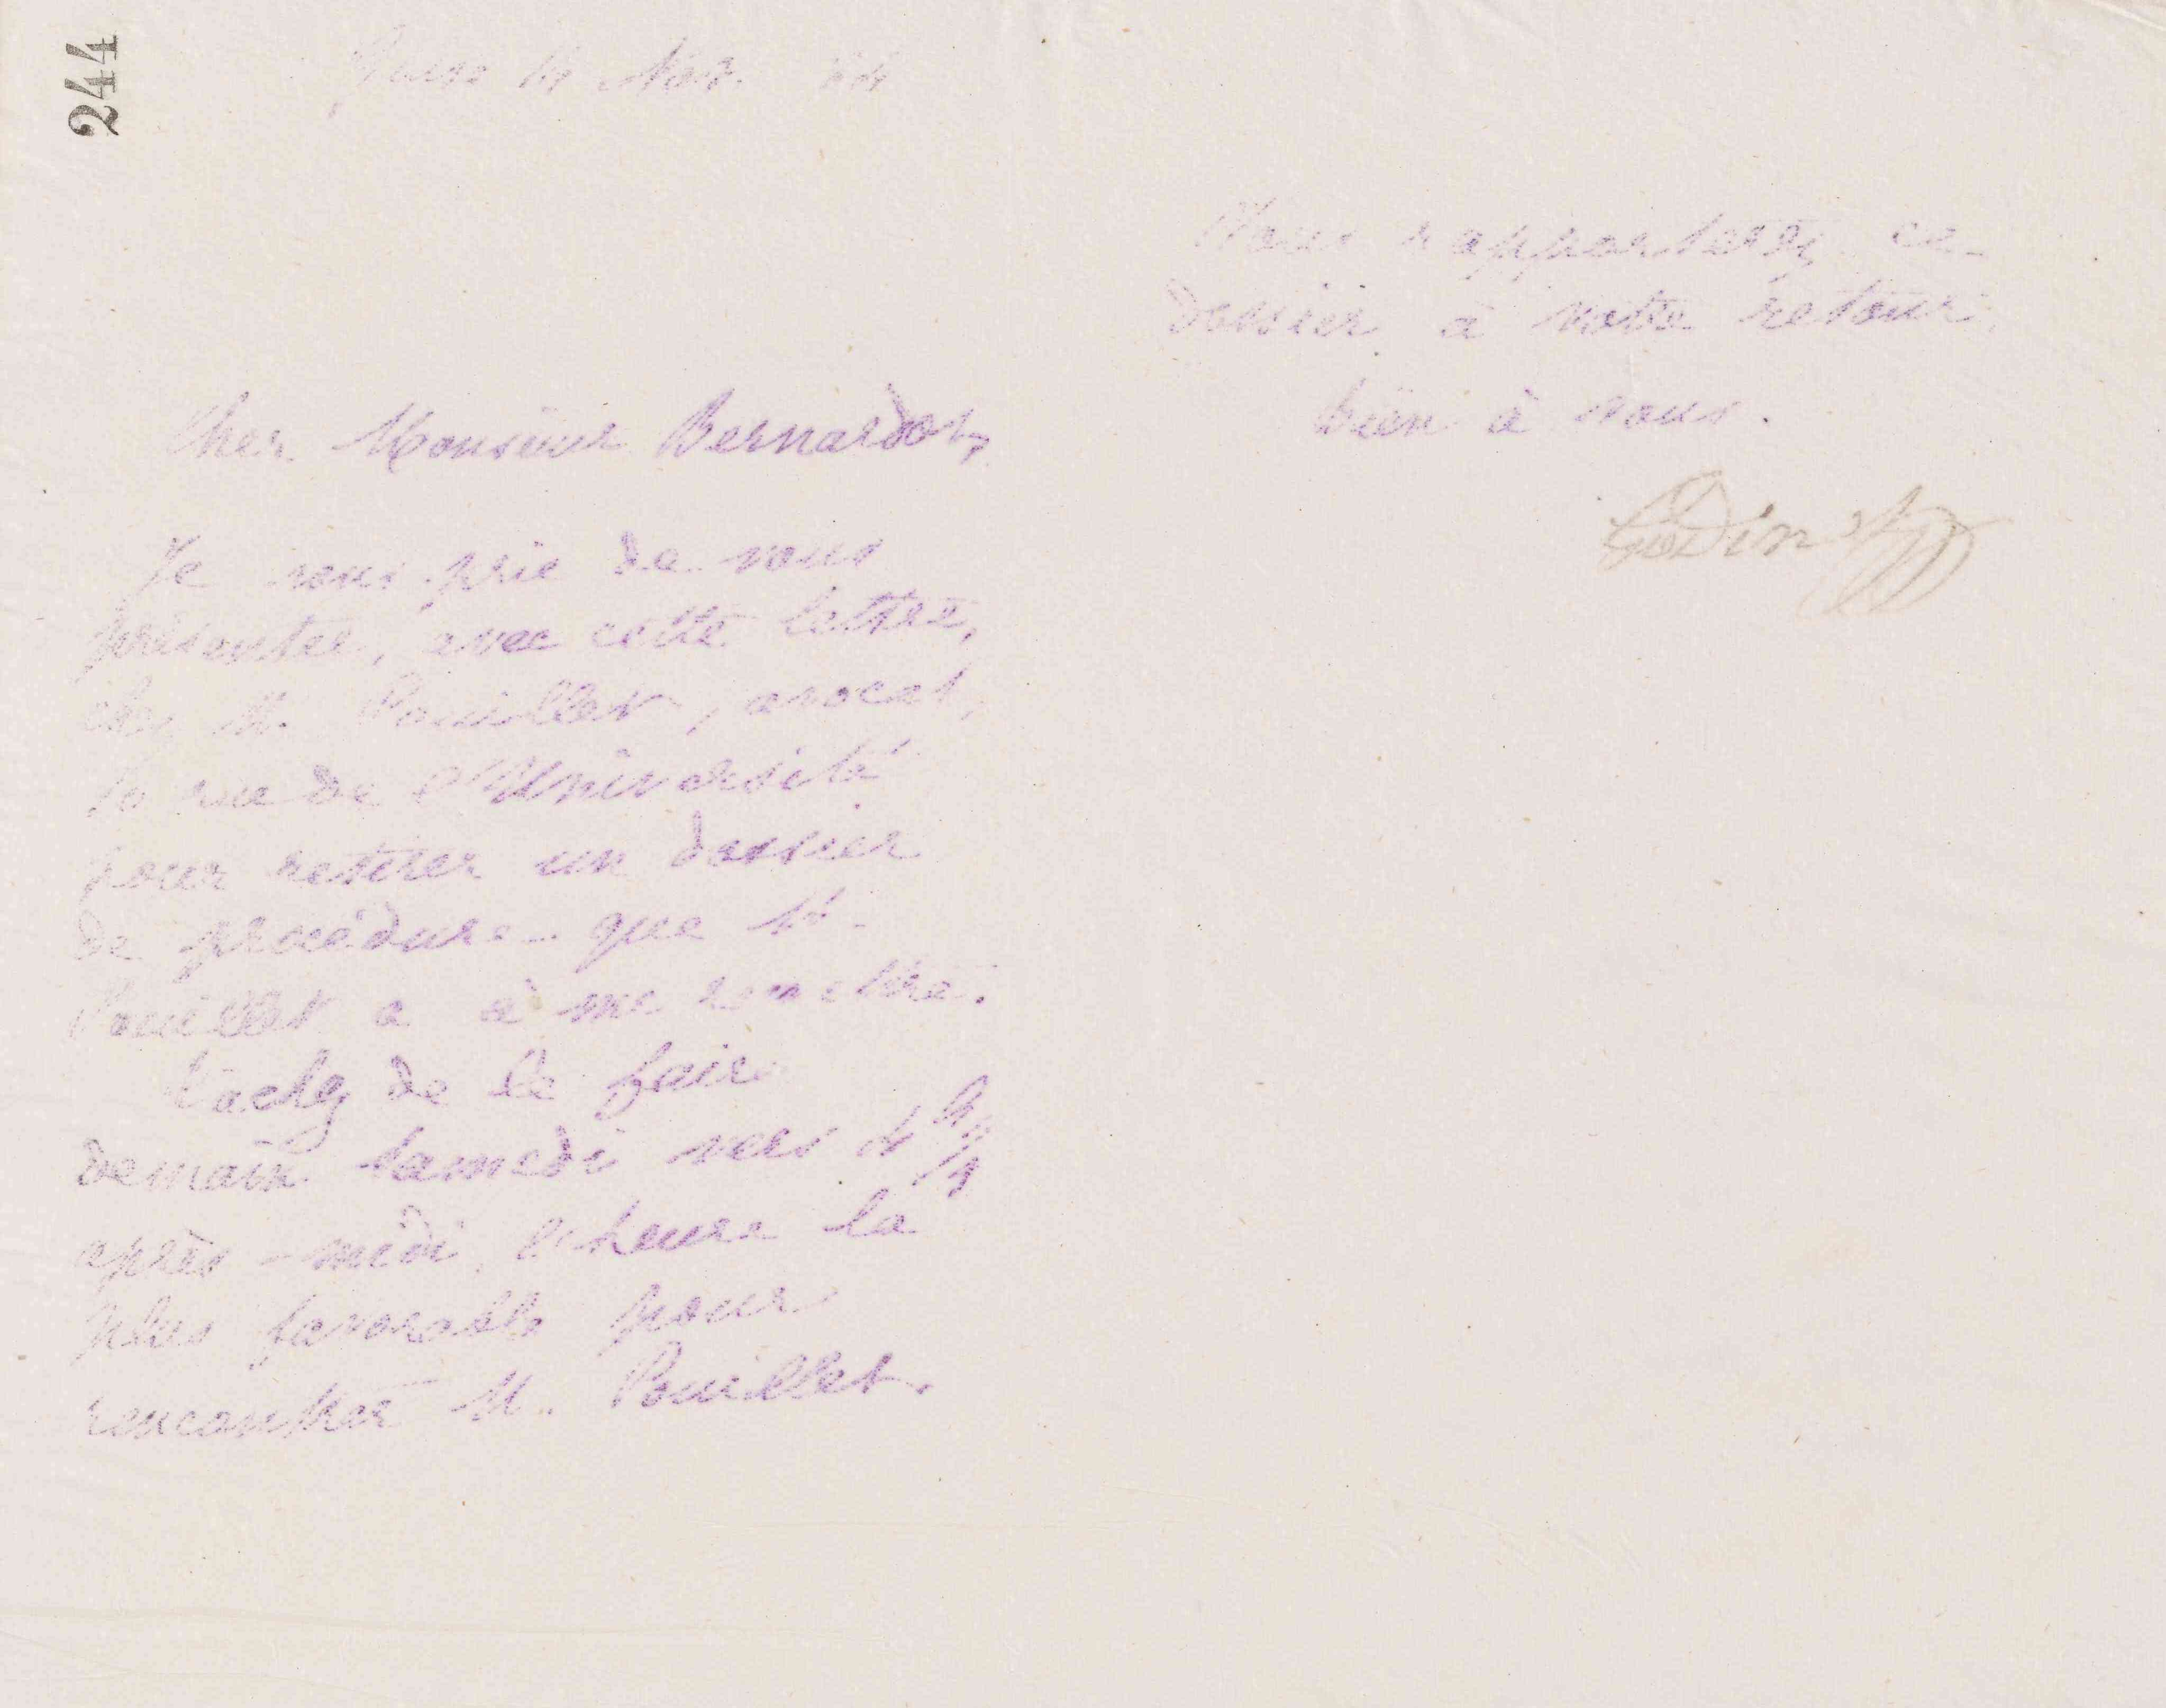 244
Guise 14 Nov. 84
Cher Monsieur Bernardot,
Je vous prie de vous
présenter, avec cette lettre,
chez M. Pouillet, avocat,
10 rue de l'Université
pour retirer un dossier
de procédure que M.
Pouillet a à me remettre.
Tâchez de le faire
demain samedi vers 4 h 1/2
après-midi, l'heure la
plus favorable pour
rencontrer M. Pouillet.
Vous rapporterez ce
dossier à votre retour.
bien à vous.
Godin